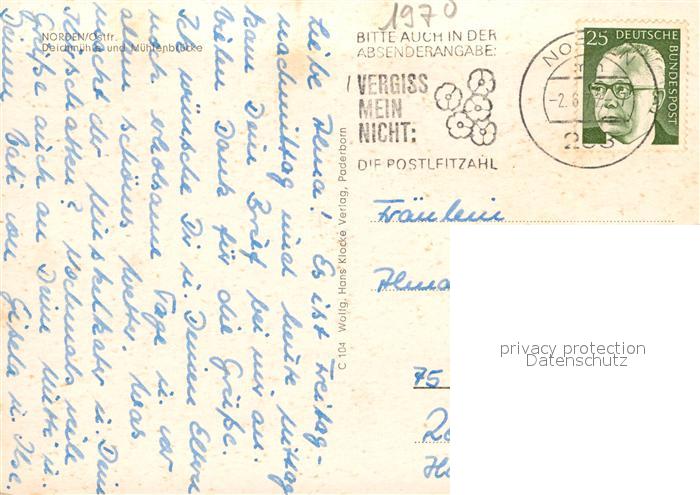 1970
NORDEN/Ostfr.
Deichmühle und Mühlenbrücke
BITTE AUCH IN DER
ABSENDERANGABE:
VERGISS
MEIN
NICHT:
DIE POSTLEITZAHL
25 DEUTSCHE
BUNDESPOST
NOR
-2.6
C 104 Wolfg. Hans Klocke Verlag, Paderborn
Liebe Alma! Es ist Freitag-
nachmittag und heute mittag
kam Dein Brief bei mir an.
Vielen Dank für die Grüße.
Ich wünsche Dir u. Deinen Eltern
noch erholsame Tage u. vor
allem schönes Wetter. Was
macht der Muskelkater u. Dein
Nochmals viele
Grüße auch an Deine Mutti u.
Deinen Vati von Gisela u. Ilse.
Fräulein
Alma
75
privacy protection
Datenschutz